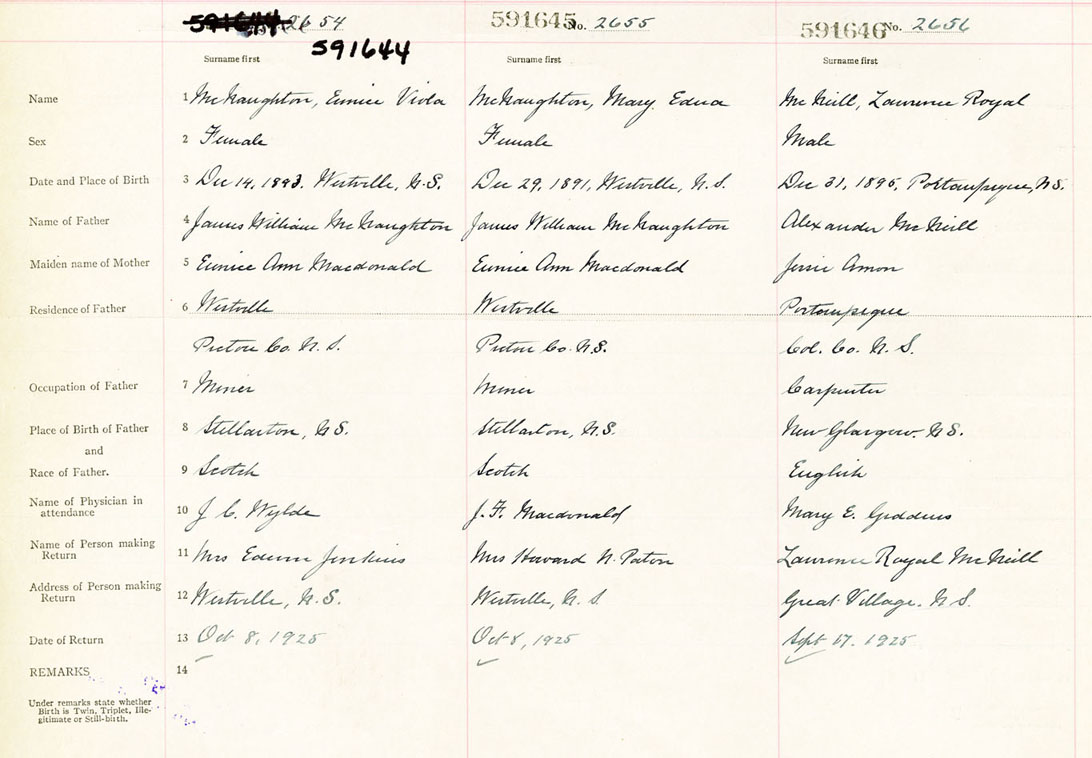 2654
591645 No. 2655
591646 No. 2656
591644
Surname first
Surname first
Surname first
Name 1 McNaughton, Eunice Viola McNaughton, Mary Edna McNeill, Lawrence Royal
Sex 2 Female Female Male
Date and Place of Birth 3 Dec 14, Westville, N.S. Dec 29, 1891, Westville, N.S. Dec 31, 1895, Portaupique, N.S.
Name of Father 4 James William McNaughton James William McNaughton Alexander McNeill
Maiden name of Mother 5 Eunice Ann Macdonald Eunice Ann Macdonald Jessie
Residence of Father 6 Westville Westville Portaupique
Pictou Co. N.S. Pictou Co. N.S. Col. Co. N.S.
Occupation of Father 7 Miner Miner Carpenter
Place of Birth of Father 8 Stellarton, N.S. Stellarton, N.S. New Glasgow. N.S.
and
Race of Father. 9 Scotch Scotch English
Name of Physician in attendance 10 J C. Wylde J. F. Macdonald Mary E. Giddens
Name of Person making Return 11 Mrs Edwin Jenkins Mrs Howard N. Paton Lawrence Royal McNeill
Address of Person making Return 12 Westville, N.S. Westville, N.S Great Village. N.S.
Date of Return 13 Oct 8, 1925 Oct 8, 1925 Sept 17. 1925
REMARKS 14
Under remarks state whether
Birth is Twin, Triplet, Ille-
gitimate or Still-birth.